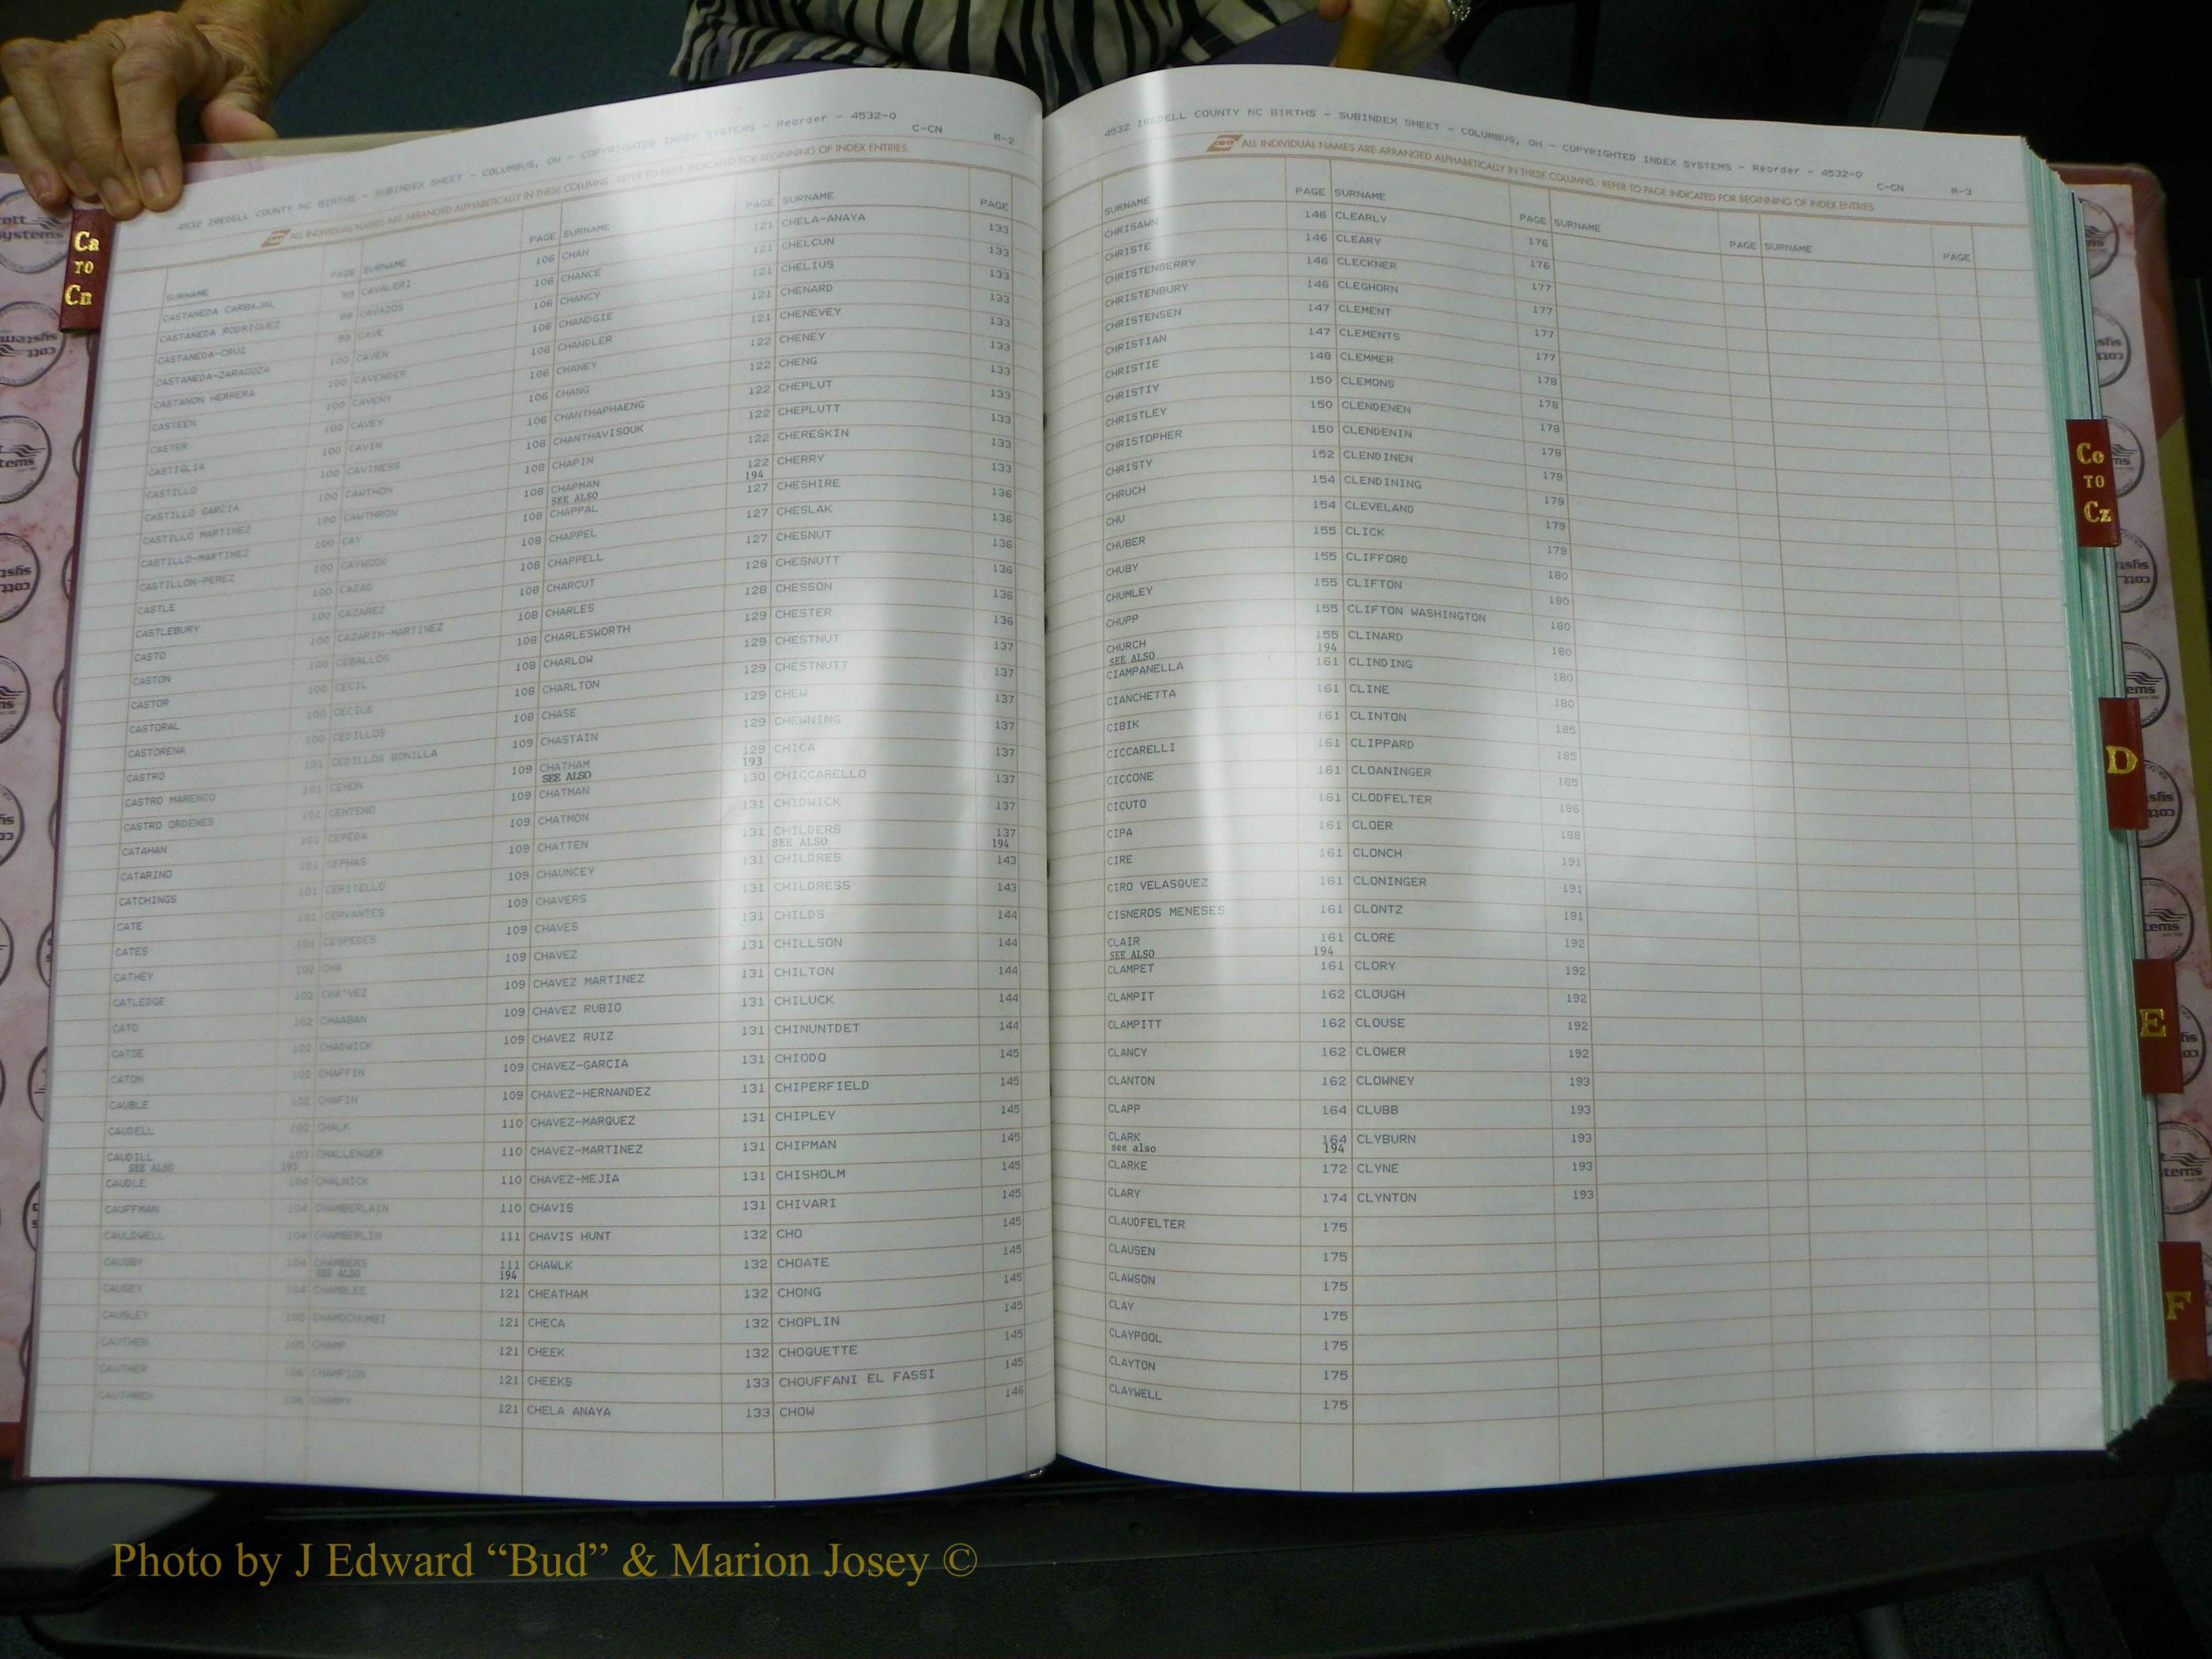 Ca
TO
Cn
4532 IREDELL COUNTY NC BIRTHS - SUBINDEX SHEET - COLUMBUS, OH - COPYRIGHTED INDEX SYSTEMS - Reorder - 4532-0
C-CN R-2
ALL INDIVIDUAL NAMES ARE ARRANGED ALPHABETICALLY IN THESE COLUMNS. REFER TO PAGE INDICATED FOR BEGINNING OF INDEX ENTRIES.
SURNAME PAGE
CASTANEDA CARBAJAL 99
CASTANEDA RODRIGUEZ 99
CASTANEDA-CRUZ 99
CASTANEDA-ZARAGOZA 100
CASTANON HERRERA 100
CASTEEN 100
CASTER 100
CASTIGLIA 100
CASTILLO 100
CASTILLO GARCIA 100
CASTILLO MARTINEZ 100
CASTILLO-MARTINEZ 100
CASTILLON-PEREZ 100
CASTLE 100
CASTLEBURY 100
CASTO 100
CASTON 100
CASTOR 100
CASTORAL 100
CASTORENA 100
CASTRO 101
CASTRO MARENCO 101
CASTRO ORDENES 101
CATAHAN 101
CATARINO 101
CATCHINGS 101
CATE 101
CATES 101
CATHEY 102
CATLEDGE 102
CATO 102
CATOE 102
CATON 102
CAUBLE 102
CAUDELL 102
CAUDILL 103
SEE ALSO 193
CAUDLE 104
CAUFFMAN 104
CAULDWELL 104
CAUSBY 104
CAUSEY 104
CAUSLEY 105
CAUTHEN 105
CAUTHER 106
CAUTHREN 106
SURNAME PAGE
CAVALERI 106
CAVAZOS 106
CAVE 106
CAVEN 106
CAVENDER 106
CAVENY 106
CAVEY 106
CAVIN 106
CAVINESS 108
CAWTHON 108
CAWTHRON 108
CAY 108
CAYWOOD 108
CAZAD 108
CAZAREZ 108
CAZARIN-MARTINEZ 108
CEBALLOS 108
CECIL 108
CECILE 108
CEDILLOS 108
CEDILLOS BONILLA 109
CEHON 109
CENTENO 109
CEPEDA 109
CEPHAS 109
CERITELLO 109
CERVANTES 109
CESPEDES 109
CHA 109
CHA'VEZ 109
CHAABAN 109
CHADWICK 109
CHAFFIN 109
CHAFIN 109
CHALK 110
CHALLENGER 110
CHALNICK 110
CHAMBERLAIN 110
CHAMBERLIN 111
CHAMBERS 111
SEE ALSO 194
CHAMBLEE 121
CHAMOCHUMBI 121
CHAMP 121
CHAMPION 121
CHAMPY 121
SURNAME PAGE
CHAN 121
CHANCE 121
CHANCY 121
CHANDGIE 121
CHANDLER 121
CHANEY 122
CHANG 122
CHANTHAPHAENG 122
CHANTHAVISOUK 122
CHAPIN 122
CHAPMAN 122
SEE ALSO 194
CHAPPAL 127
CHAPPEL 127
CHAPPELL 127
CHARCUT 128
CHARLES 128
CHARLESWORTH 129
CHARLOW 129
CHARLTON 129
CHASE 129
CHASTAIN 129
CHATHAM 129
SEE ALSO 193
CHATMAN 130
CHATMON 131
CHATTEN 131
CHAUNCEY 131
CHAVERS 131
CHAVES 131
CHAVEZ 131
CHAVEZ MARTINEZ 131
CHAVEZ RUBIO 131
CHAVEZ RUIZ 131
CHAVEZ-GARCIA 131
CHAVEZ-HERNANDEZ 131
CHAVEZ-MARQUEZ 131
CHAVEZ-MARTINEZ 131
CHAVEZ-MEJIA 131
CHAVIS 131
CHAVIS HUNT 132
CHAWLK 132
CHEATHAM 132
CHECA 132
CHEEK 132
CHEEKS 133
CHELA ANAYA 133
SURNAME PAGE
CHELA-ANAYA 133
CHELCUN 133
CHELIUS 133
CHENARD 133
CHENEVEY 133
CHENEY 133
CHENG 133
CHEPLUT 133
CHEPLUTT 133
CHERESKIN 133
CHERRY 133
CHESHIRE 136
CHESLAK 136
CHESNUT 136
CHESNUTT 136
CHESSON 136
CHESTER 136
CHESTNUT 137
CHESTNUTT 137
CHEW 137
CHEWNING 137
CHICA 137
CHICCARELLO 137
CHIDWICK 137
CHILDERS 137
SEE ALSO 194
CHILDRES 143
CHILDRESS 143
CHILDS 144
CHILLSON 144
CHILTON 144
CHILUCK 144
CHINUNTDET 144
CHIODO 145
CHIPERFIELD 145
CHIPLEY 145
CHIPMAN 145
CHISHOLM 145
CHIVARI 145
CHO 145
CHOATE 145
CHONG 145
CHOPLIN 145
CHOQUETTE 145
CHOUFFANI EL FASSI 145
CHOW 146
4532 IREDELL COUNTY NC BIRTHS - SUBINDEX SHEET - COLUMBUS, OH - COPYRIGHTED INDEX SYSTEMS - Reorder - 4532-0
C-CN R-3
ALL INDIVIDUAL NAMES ARE ARRANGED ALPHABETICALLY IN THESE COLUMNS. REFER TO PAGE INDICATED FOR BEGINNING OF INDEX ENTRIES
SURNAME PAGE
CHRISAWN 146
CHRISTE 146
CHRISTENBERRY 146
CHRISTENBURY 146
CHRISTENSEN 147
CHRISTIAN 147
CHRISTIE 148
CHRISTIY 150
CHRISTLEY 150
CHRISTOPHER 150
CHRISTY 152
CHRUCH 154
CHU 154
CHUBER 155
CHUBY 155
CHUMLEY 155
CHUPP 155
CHURCH 155
SEE ALSO 194
CIAMPANELLA 161
CIANCHETTA 161
CIBIK 161
CICCARELLI 161
CICCONE 161
CICUTO 161
CIPA 161
CIRE 161
CIRO VELASQUEZ 161
CISNEROS MENESES 161
CLAIR 161
SEE ALSO 194
CLAMPET 161
CLAMPIT 162
CLAMPITT 162
CLANCY 162
CLANTON 162
CLAPP 164
CLARK 164
see also 194
CLARKE 172
CLARY 174
CLAUDFELTER 175
CLAUSEN 175
CLAWSON 175
CLAY 175
CLAYPOOL 175
CLAYTON 175
CLAYWELL 175
SURNAME PAGE
CLEARLY 176
CLEARY 176
CLECKNER 177
CLEGHORN 177
CLEMENT 177
CLEMENTS 177
CLEMMER 178
CLEMONS 178
CLENDENEN 178
CLENDENIN 178
CLENDINEN 179
CLENDINING 179
CLEVELAND 179
CLICK 179
CLIFFORD 180
CLIFTON 180
CLIFTON WASHINGTON 180
CLINARD 180
CLINDING 180
CLINE 180
CLINTON 185
CLIPPARD 185
CLOANINGER 185
CLODFELTER 186
CLOER 188
CLONCH 191
CLONINGER 191
CLONTZ 191
CLORE 192
CLORY 192
CLOUGH 192
CLOUSE 192
CLOWER 192
CLOWNEY 193
CLUBB 193
CLYBURN 193
CLYNE 193
CLYNTON 193
SURNAME PAGE
SURNAME PAGE
Co
TO
Cz
D
E
F
Photo by J Edward “Bud” & Marion Josey ©